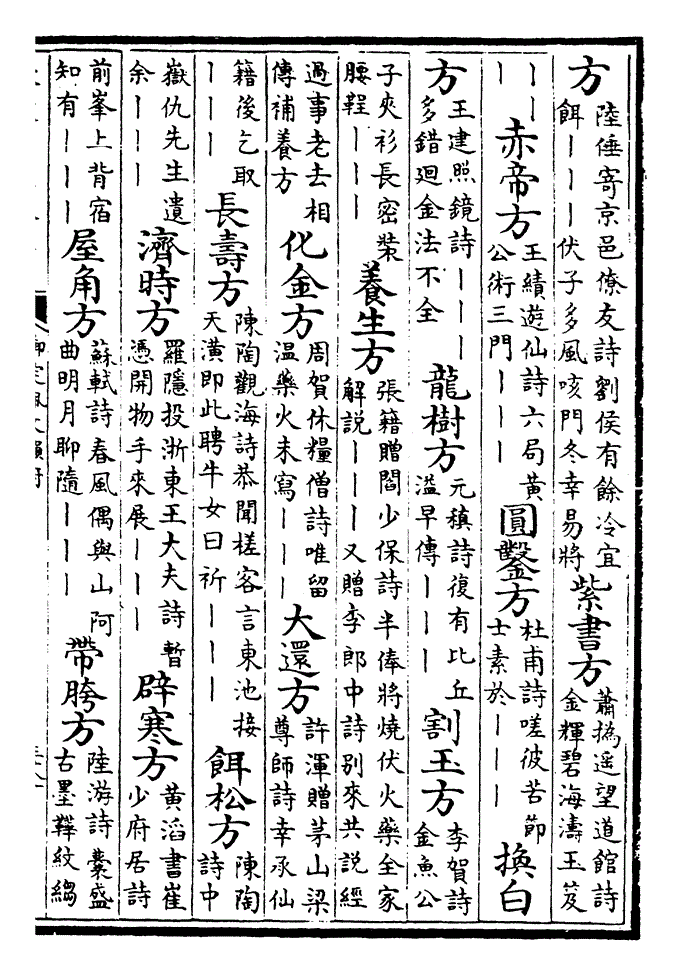 方陸倕寄京邑僚友詩劉侯有餘冷宜餌丨丨丨伏子多風咳門冬幸易將紫書方蕭撝遥望道館詩金輝碧海濤玉笈
丨丨丨赤帝方王績遊仙詩六局黄公術三門丨丨丨圓鑿方杜甫詩嗟彼苦節士素於丨丨丨換白
方王建照鏡詩丨丨丨多錯廻金法不全龍樹方元稹詩復有比丘溢早傳丨丨丨割玉方李賀詩金魚公
子夾衫長密裝腰鞓丨丨丨養生方張籍贈閻少保詩半俸將燒伏火藥全家解説丨丨丨又贈李郎中詩别來共説經
過事老去相傳補養方化金方周賀休糧僧詩唯留温藥火未寫丨丨丨大還方許渾贈茅山梁尊師詩幸承仙
籍後乞取丨丨丨長壽方陳陶觀海詩恭聞槎客言東池接天潢即此聘牛女曰祈丨丨丨餌松方陳陶詩中
嶽仇先生遺余丨丨丨濟時方羅隱投浙東王大夫詩暫憑開物手來展丨丨丨辟寒方黄滔書崔少府居詩
前峯上背宿知有丨丨丨屋角方蘇軾詩春風偶與山阿曲明月聊隨丨丨丨帶胯方陸游詩囊盛古墨鞾紋縐